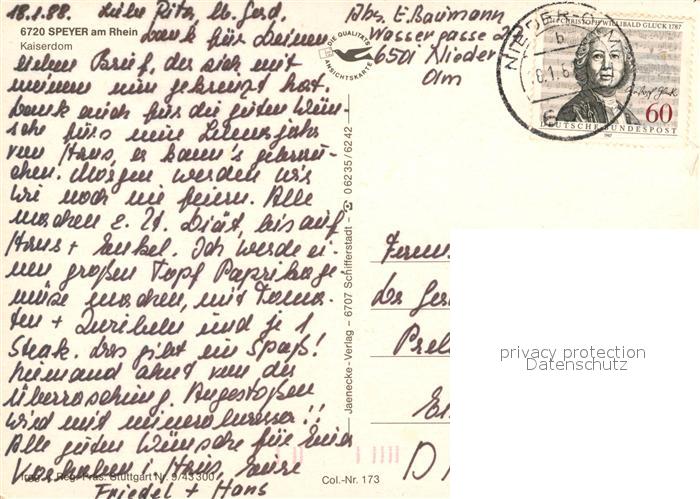 18.1.88. Liebe Rita, lb. Gerd,
6720 SPEYER am Rhein
Kaiserdom
Dank für Deinen
lieben Brief, der sich mit
meinem nun gekreuzt hat.
Dank auch für die guten Wün-
sche fürs neue Lebensjahr
von Hans, er kann's gebrau-
chen. Morgen werden wir
wie noch nie feiern. Alle
machen z. Zt. Diät, bis auf
Hans + Enkel. Ich werde ei-
nen großen Topf Paprikage-
müse machen, mit Toma-
ten + Zwiebeln und je 1
Steak. Das gibt ein Spaß!
Niemand ahnt von der
Überraschung. Angestoßen
wird mit Mineralwasser!!
Alle guten Wünsche für Euer
Vorhaben i. Haus, Eure
Friedel + Hans
Abs. E. Baumann
Wassergasse
6501 Nieder
Olm
DIE QUALITÄTS
ANSICHTSKARTE
Jaenecke-Verlag – 6707 Schifferstadt – 06235/6242
Stuttgart Nr. 9/43300
Col.-Nr. 173
CHRISTOPH WILLIBALD GLUCK 1787
60
DEUTSCHE BUNDESPOST
NIEDER
b
6
privacy protection
Datenschutz